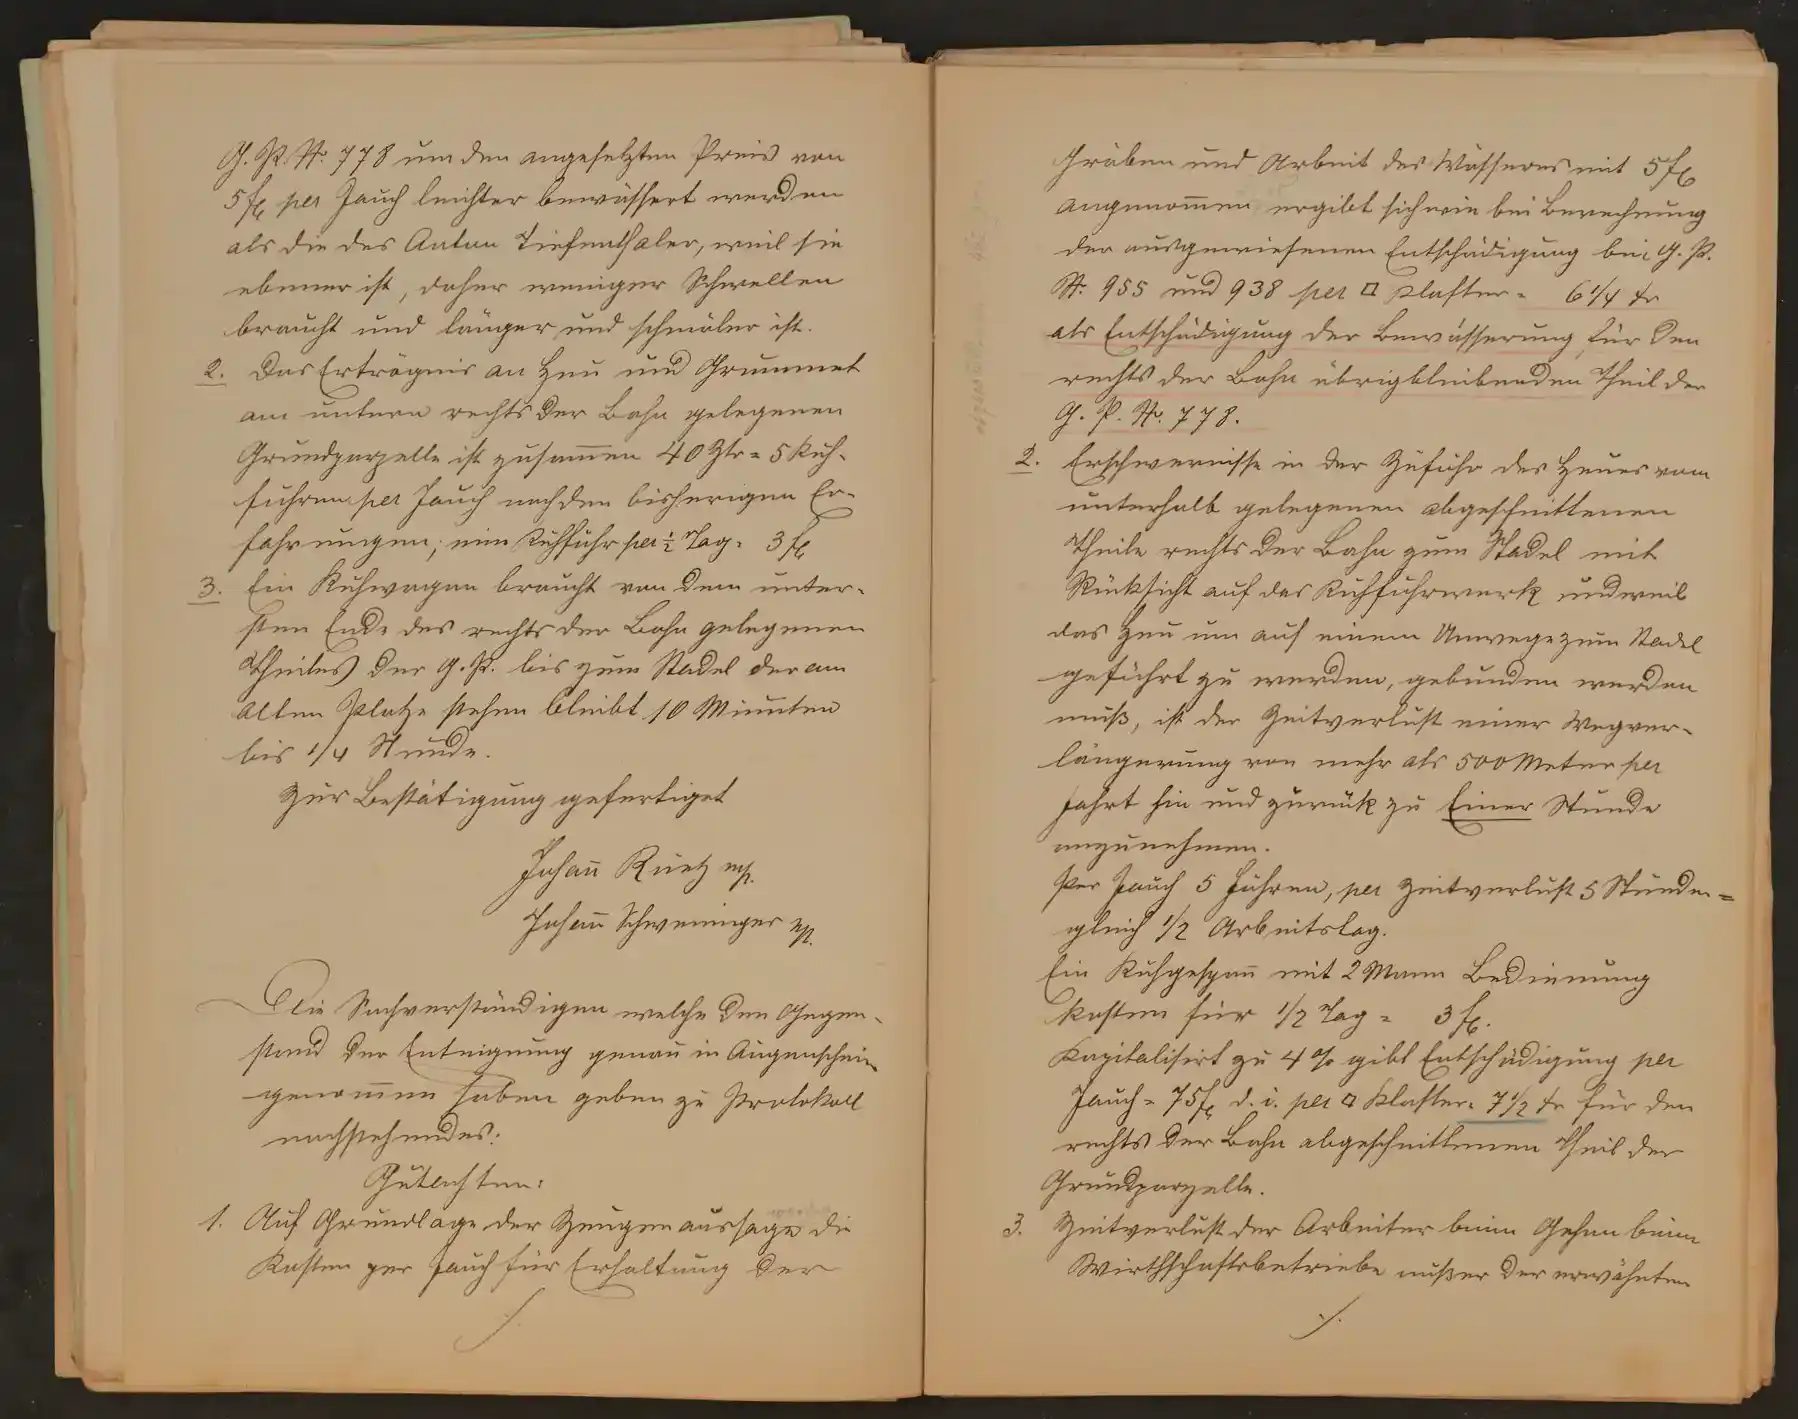 G. P. Nr. 778 um den angesetzten Preis von
5 fl. per Jauch leichter bewässert werden
als die des Anton Tiefenthaler, weil sie
ebener ist, daher weniger Schwellen
braucht und länger und schmäler ist.
2. Das Erträgnis an Heu und Grummet
am untern rechts der Bahn gelegenen
Grundparzelle ist zusam̅en 40 Ztr = 5 Kuh-
fuhren per Jauch nach den bisherigen Er-
fahrungen; eine Kuhfuhr per ½ Tag = 3 fl
3. Ein Kuhwagen braucht von dem unter-
sten Ende des rechts der Bahn gelegenen
Theiles der G. P. bis zum Stadel der am
alten Platze stehen bleibt 10 Minuten
bis 1/4 Stunde.
Zur Bestätigung gefertiget
Johan̅ Ruetz mp.
Johan̅ Schweninger mp.
Die Sachverständigen welche den Gegen-
stand der Enteignung genau in Augenschein
genom̅en haben geben zu Protokoll
nachstehendes:
Gutachten:
1. Auf Grundlage der Zeugenaussage die
Kosten per Jauch für Erhaltung der
./.
Gräben und Arbeit des Wässerns mit 5 fl
angenom̅en ergibt sich wie bei Berechnung
der ausgewiesenen Entschädigung bei G. P.
Nr. 955 und 938 per □ Klafter = 6 1/4 kr
als Entschädigung der Bewässerung für den
rechts der Bahn übrigbleibenden Theil der
G. P. Nr. 778.
2. Erschwernisse in der Zufuhr des Heues vom
unterhalb gelegenen abgeschnittenen
Theile rechts der Bahn zum Stadel mit
Rücksicht auf das Kuhfuhrwerk und weil
das Heu um auf einem Umwege zum Stadel
geführt zu werden, gebunden werden
muß, ist der Zeitverlust einer Wegver-
längerung von mehr als 500 Meter per
Fahrt hin und zurück zu Einer Stunde
anzunehmen.
Per Jauch 5 Fuhren, per Zeitverlust 5 Stunden =
gleich 1/2 Arbeitstag.
Ein Kuhgespan̅ mit 2 Mann Bedienung
kosten für 1/2 Tag = 3 fl.
Kapitalisirt zu 4 % gibt Entschädigung per
Jauch = 75 fl d. i. per □ Klafter = 7 1/2 kr für den
rechts der Bahn abgeschnittenen Theil der
Grundparzelle.
3. Zeitverlust der Arbeiter beim Gehen beim
Wirthschaftsbetriebe außer der erwähnten
./.